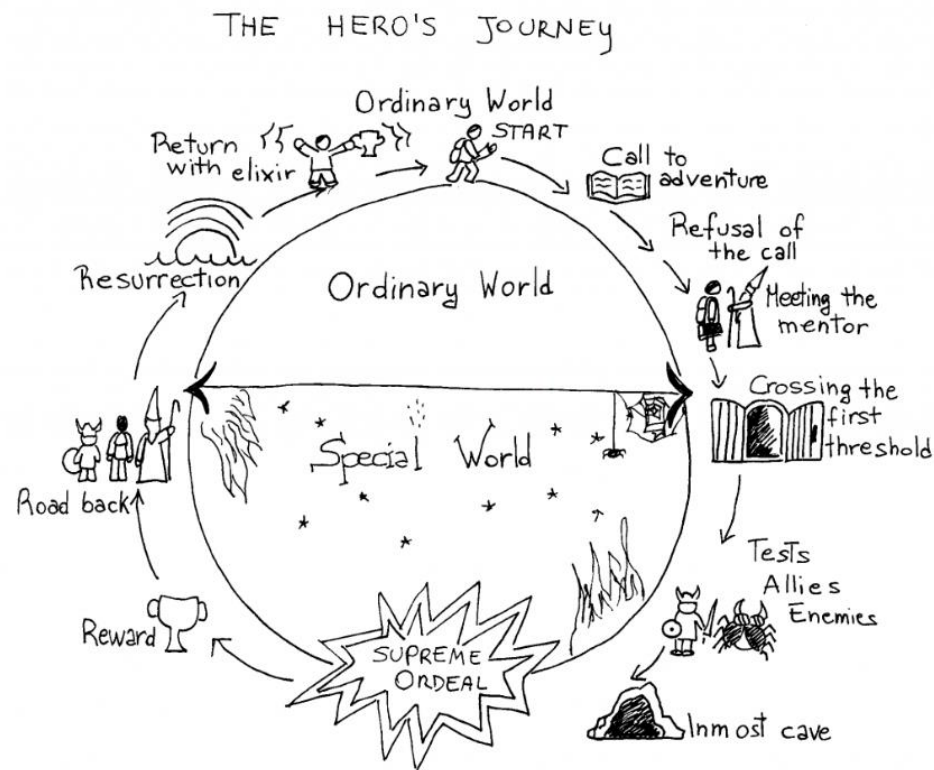 THE HERO'S JOURNEY
Ordinary World
START
Call to
adventure
Refusal of
the call
Meeting the
mentor
Crossing the
first
threshold
Tests
Allies
Enemies
Inmost cave
SUPREME
ORDEAL
Reward
Road back
Resurrection
Return
with elixir
Ordinary World
Special World